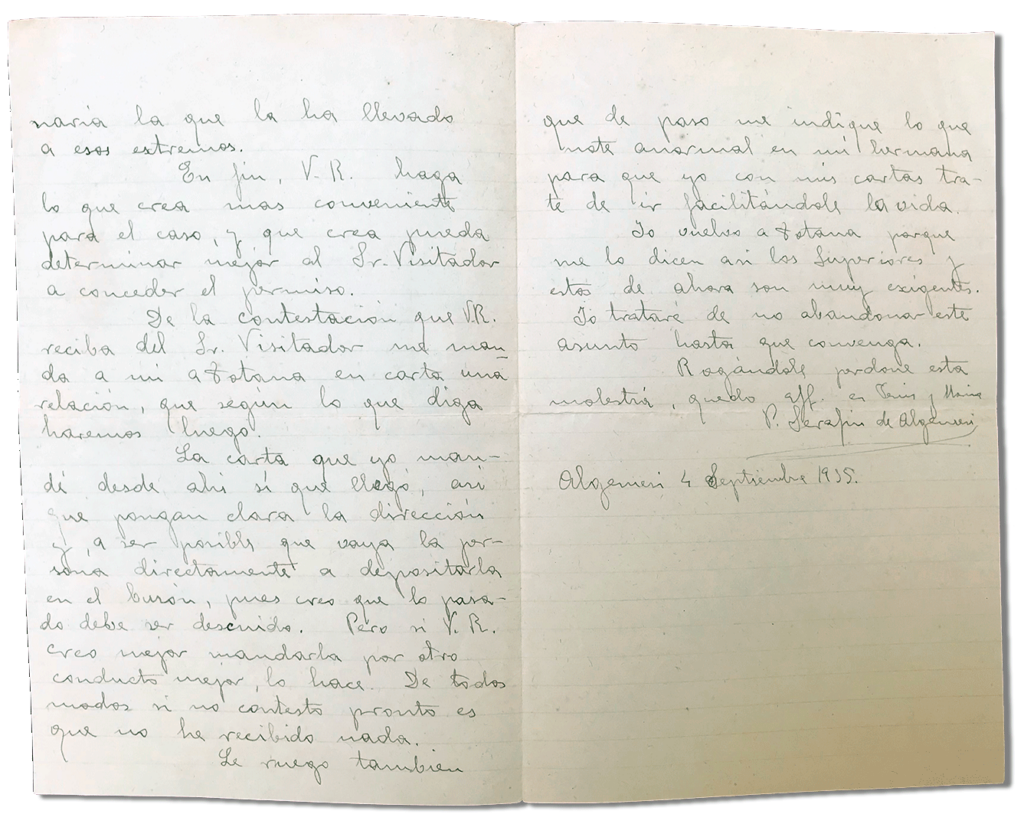 naria la que la ha llevado
a esos extremos.
En fin, V.R. haga
lo que crea mas conveniente
para el caso, y que crea pueda
determinar mejor al Sr. Visitador
a conceder el permiso.
De la contestación que V.R.
reciba del Sr. Visitador me man-
da a mi a Totana en carta una
relación, que segun lo que diga
haremos luego.
La carta que yo man-
dé desde ahi sí que llegó, asi
que pongan clara la dirección
y, a ser posible que vaya la per-
sona directamente a depositarla
en el buzón, pues creo que lo pasa-
do debe ser descuido. Pero si V.R.
cree mejor mandarla por otro
conducto mejor, lo hace. De todos
modos si no contesto pronto es
que no he recibido nada.
Le ruego tambien
que de paso me indique lo que
note anormal en mi hermana
para que yo con mis cartas tra-
te de ir facilitándole la vida.
Yo vuelvo a Totana porque
me lo dicen asi los Superiores y
estos de ahora son muy exigentes.
Yo trataré de no abandonar este
asunto hasta que convenga.
Rogándole perdone esta
molestia, quedo aff. en Jesús y Maria
P. Serafin de Algemesi
Algemesi 4 Septiembre 1935.